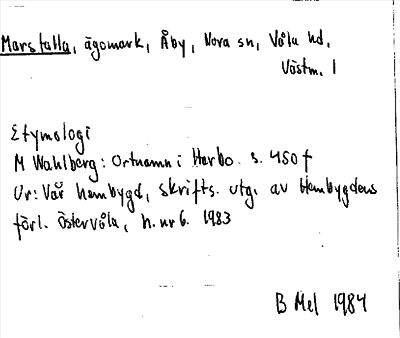 Marstalla, ägomark, Åby, Nora sn, Våla hd,
Västm. l
Etymologi
M Wahlberg: Ortnamn i Harbo. s. 450 f
Ur: Vår hembygd, skrifts. utg. av Hembygdens
förl. Östervåla, h. nr 6. 1983
B Mel 1984